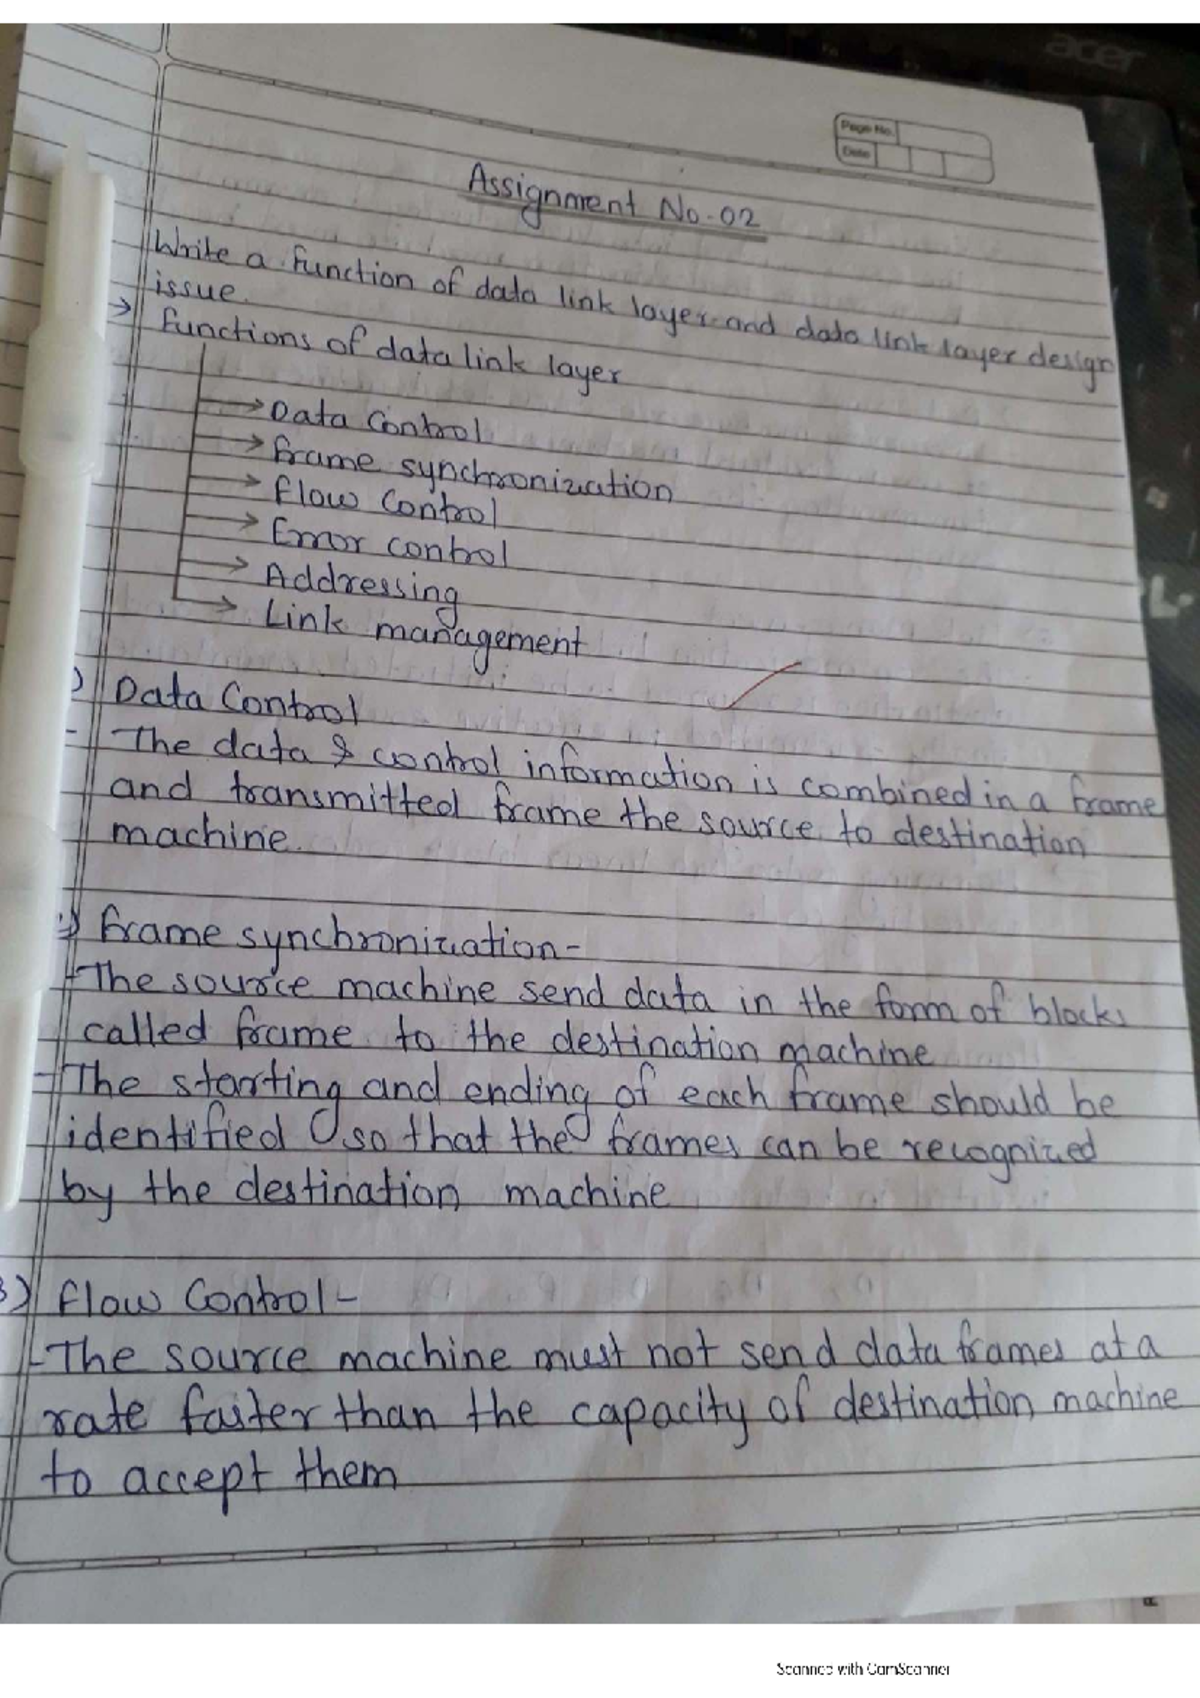 acer
Page No.
Date
Assignment No-02
Write a function of data link layer and data link layer design
issue.
→ Functions of data link layer
→ Data Control
→ Frame synchronization
→ Flow Control
→ Error control
→ Addressing
→ Link management
) Data Control
- The data & control information is combined in a frame
and transmitted frame the source to destination
machine.
) Frame synchronization-
- The source machine send data in the form of blocks
called frame to the destination machine
- The starting and ending of each frame should be
identified so that the frames can be recognized
by the destination machine
3) Flow Control-
- The source machine must not send data frames at a
rate faster than the capacity of destination machine
to accept them
Scanned with CamScanner